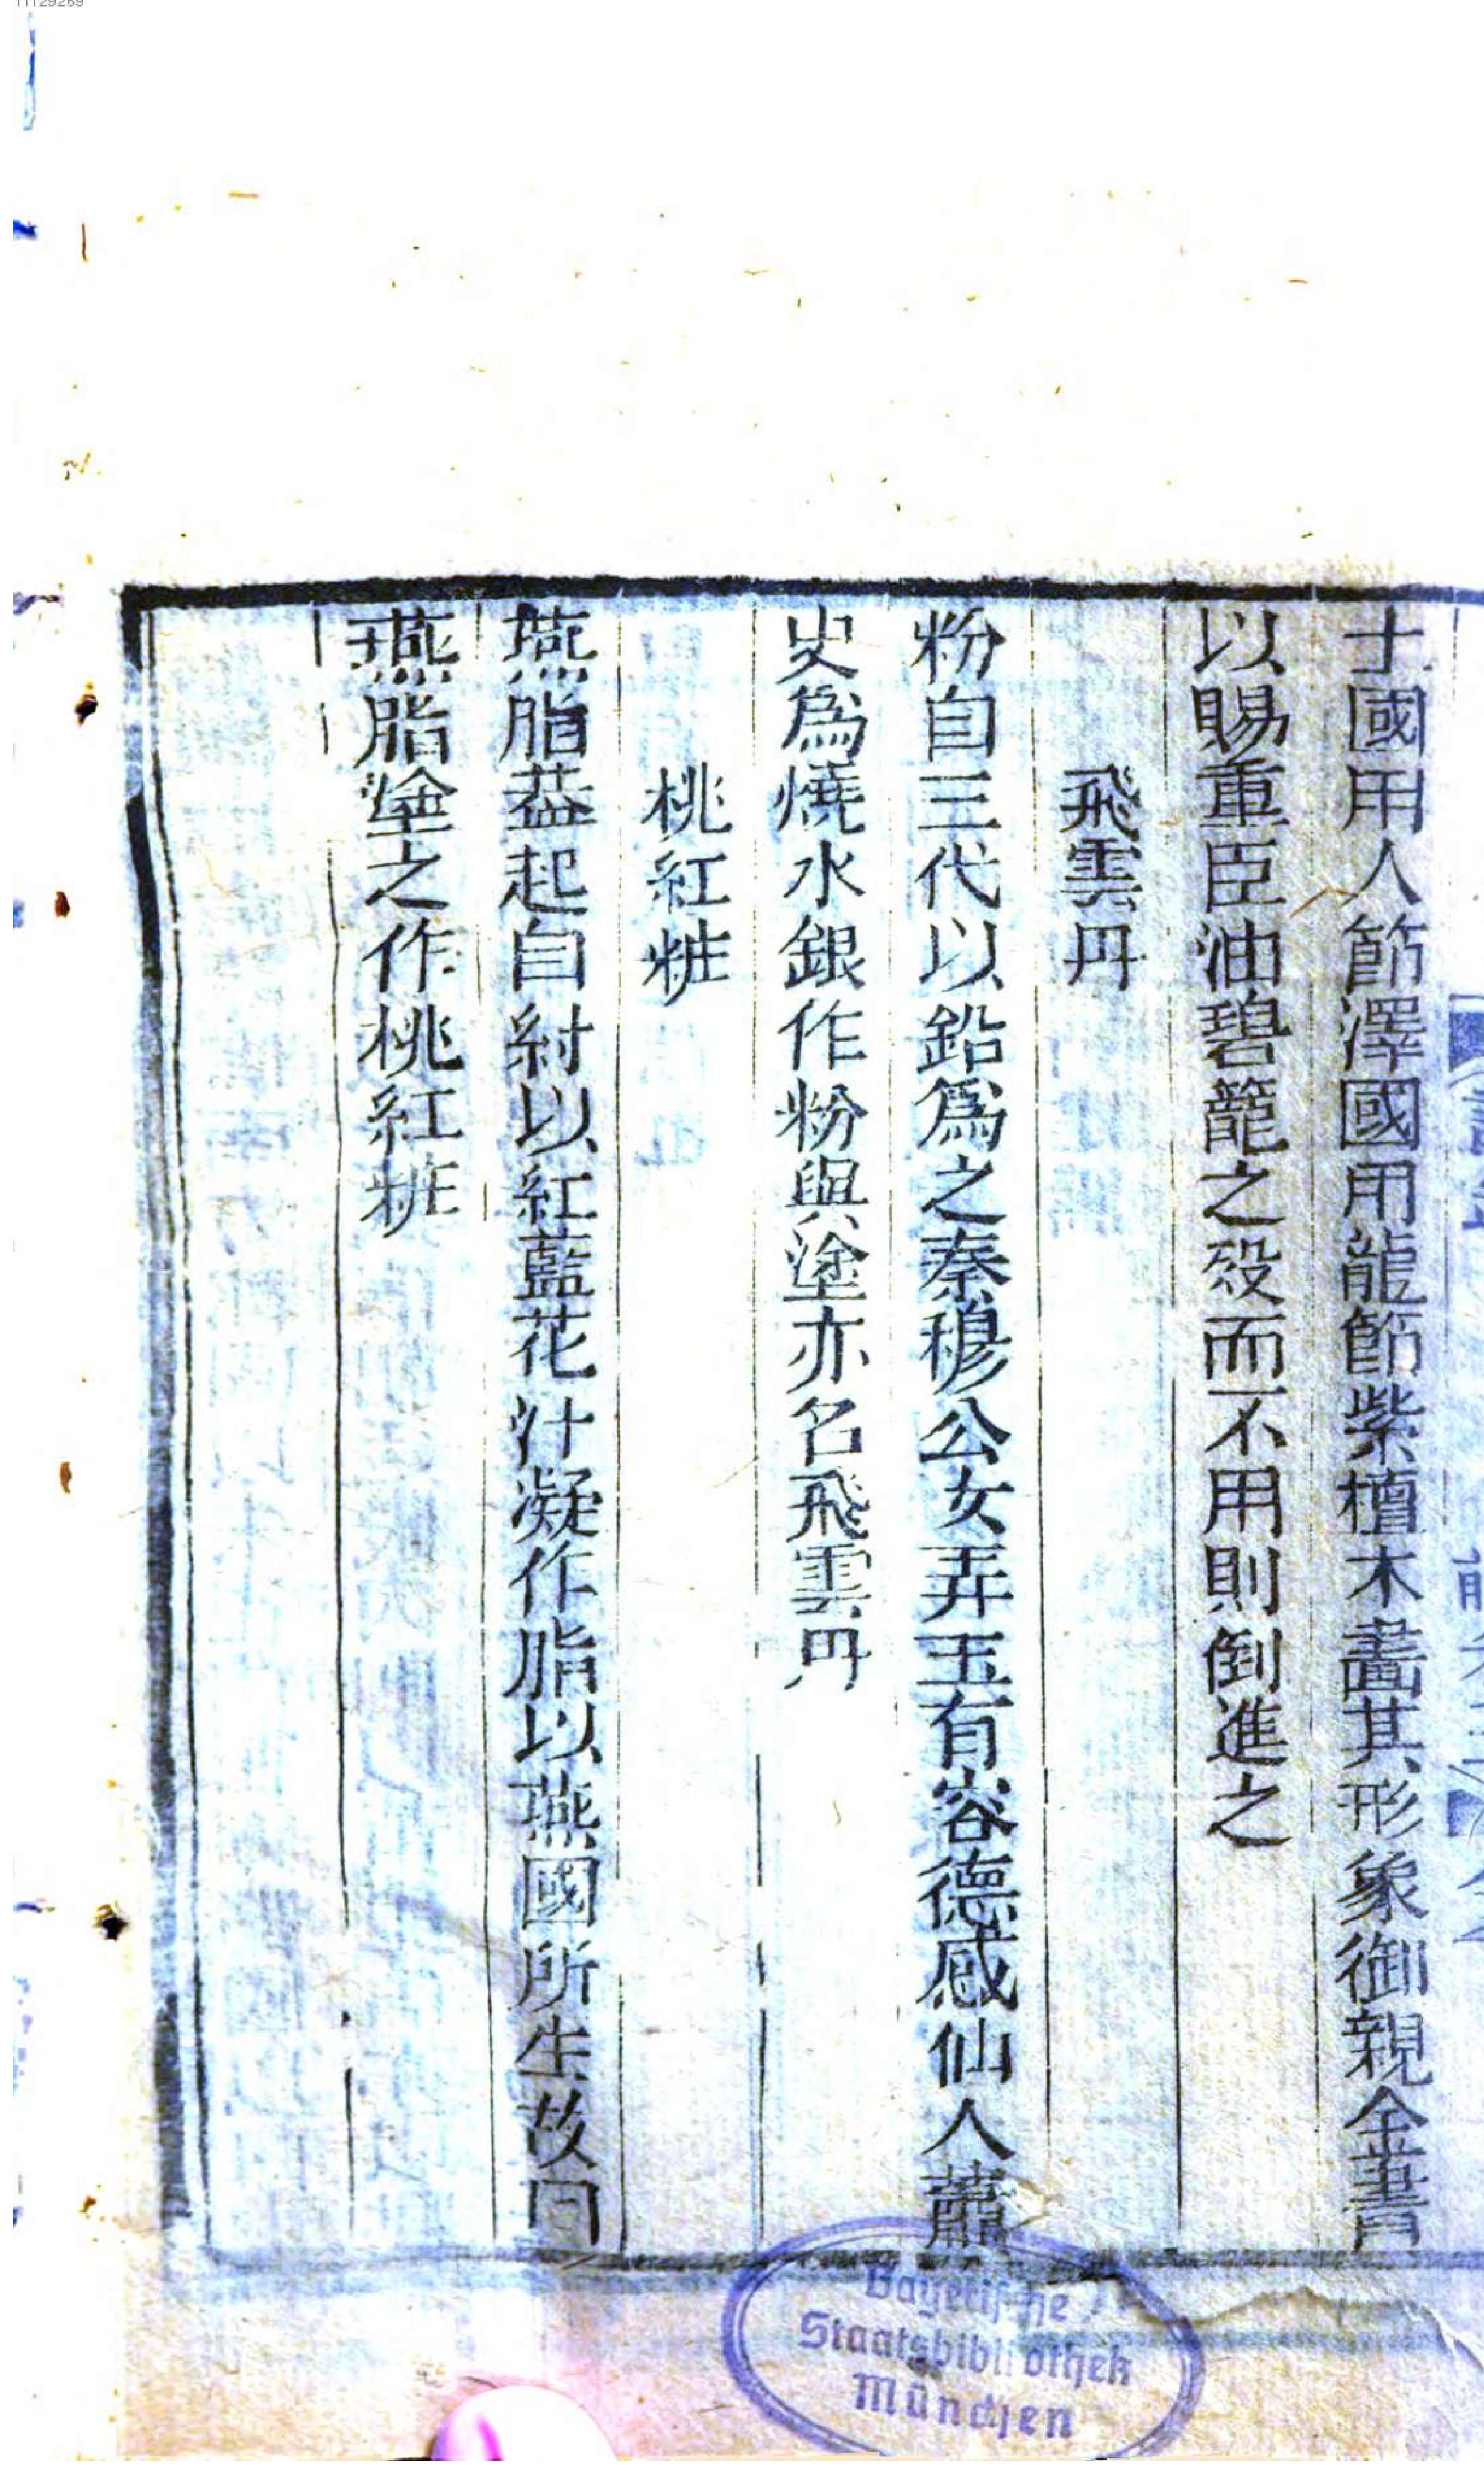 土國用人節澤國用龍節紫檀木畵其形象御親金書
以賜重臣油碧籠之殁而不用則倒進之
飛雲丹
粉自三代以鉛爲之秦穆公女弄玉有容德感仙人蕭
史爲燒水銀作粉與塗亦名飛雲丹
桃紅粧
燕脂葢起自紂以紅藍花汁凝作脂以燕國所生故曰
燕脂塗之作桃紅粧
Bayerische
Staatsbibliothek
München
11129269